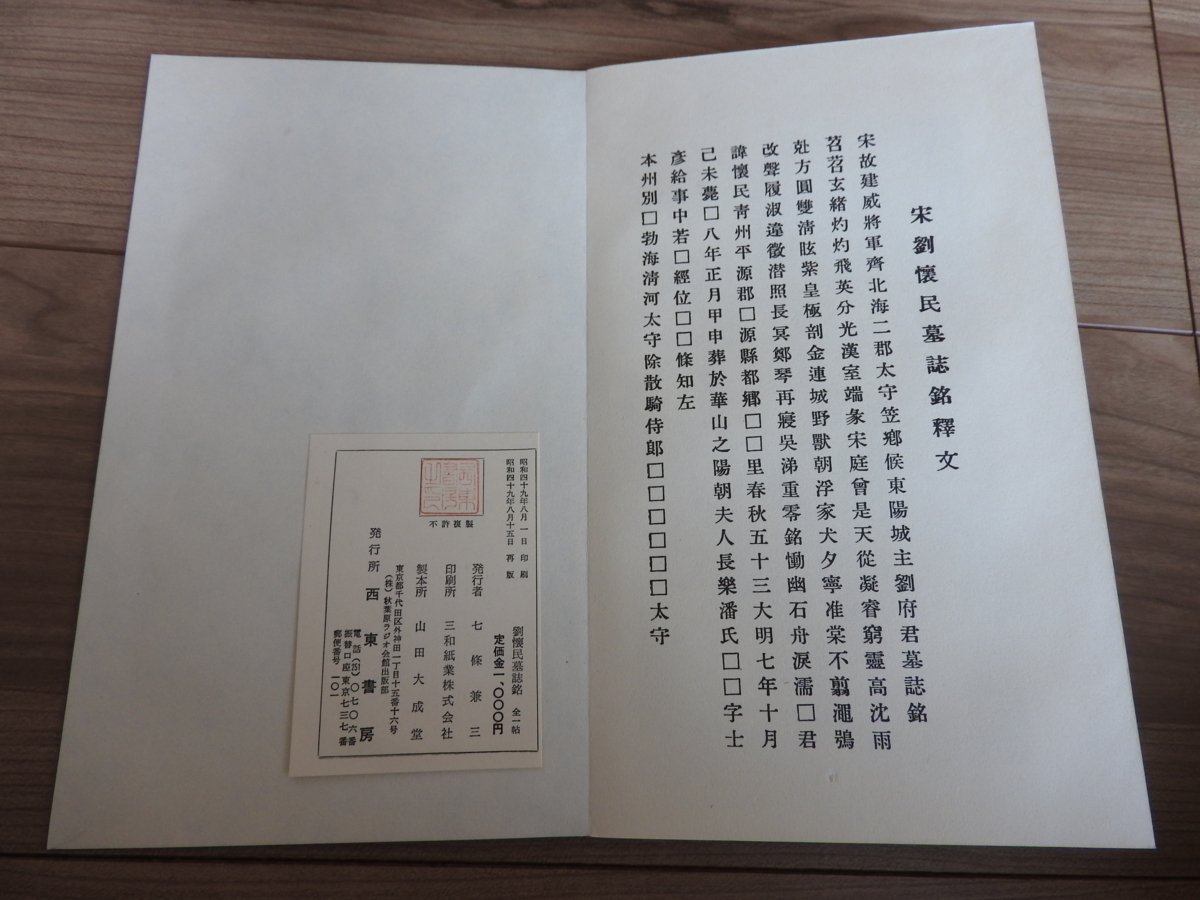 宋劉懷民墓誌銘釋文
宋故建威將軍齊北海二郡太守笠鄉候東陽城主劉府君墓誌銘
苕苕玄緒灼灼飛英分光漢室端彖宋庭曾是天從凝睿窮靈高沈雨
剋方圓雙清眩紫皇極剖金連城野獸朝浮家犬夕寧淮棠不翦澠鴞
改聲履淑違徵潜照長冥鄭琴再寢吳涕重零銘慟幽石舟淚濡□君
諱懷民青州平源郡□源縣都鄉□□里春秋五十三大明七年十月
己未薨□八年正月甲申葬於華山之陽朝夫人長樂潘氏□□字士
彥給事中若□經位□□條知左
本州別□勃海清河太守除散騎侍郎□□□□□□太守
昭和四十九年八月一日 印刷
昭和四十九年八月十五日 再版
不許複製
劉懷民墓誌銘 全一帖
定価金一、〇〇〇円
発行者 七條兼三
印刷所 三和紙業株式会社
製本所 山田大成堂
東京都千代田区外神田一丁目十五番十六号
(株)秋葉原ラジオ会館出版部
発行所 西東書房
電話(251)〇七〇六番
振替口座東京七三七番
郵便番号 一〇一